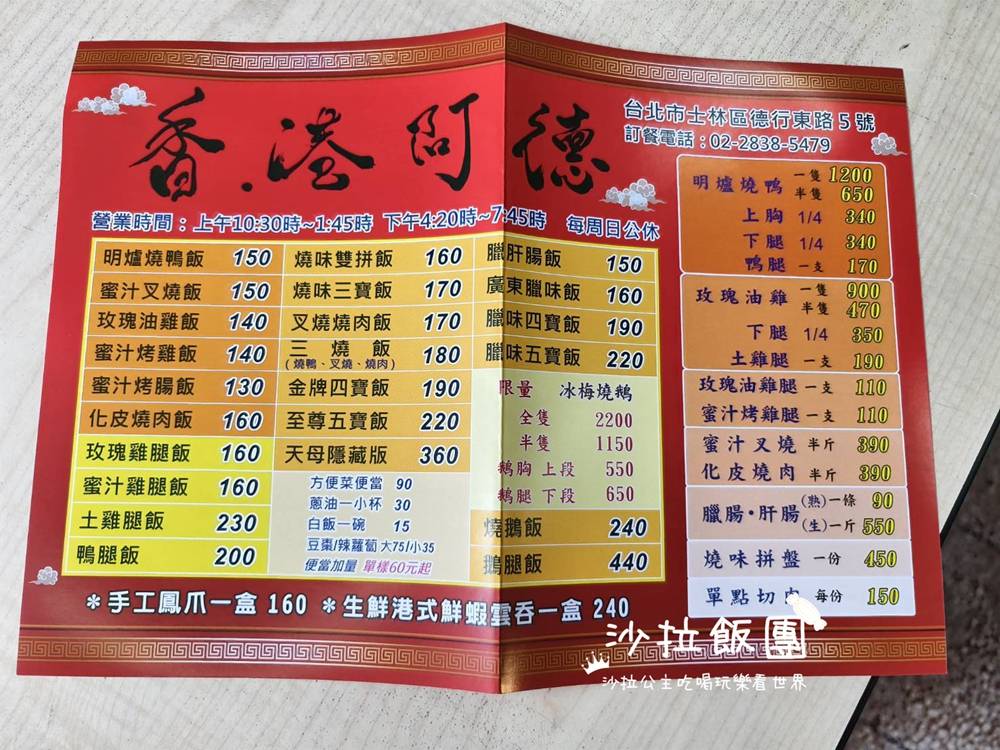 香港阿德
台北市士林區德行東路5號
訂餐電話：02-2838-5479
營業時間：上午10:30時~1:45時 下午4:20時~7:45時 每周日公休
明爐燒鴨飯 150
蜜汁叉燒飯 150
玫瑰油雞飯 140
蜜汁烤雞飯 140
蜜汁烤腸飯 130
化皮燒肉飯 160
玫瑰雞腿飯 160
蜜汁雞腿飯 160
土雞腿飯 230
鴨腿飯 200
燒味雙拼飯 160
燒味三寶飯 170
叉燒燒肉飯 170
三燒飯 180
(燒鴨、叉燒、燒肉)
金牌四寶飯 190
至尊五寶飯 220
天母隱藏版 360
方便菜便當 90
蔥油一小杯 30
白飯一碗 15
豆棗/辣蘿蔔 大75/小35
便當加量 單樣60元起
臘肝腸飯 150
廣東臘味飯 160
臘味四寶飯 190
臘味五寶飯 220
限量 冰梅燒鵝
全隻 2200
半隻 1150
鵝胸 上段 550
鵝腿 下段 650
燒鵝飯 240
鵝腿飯 440
明爐燒鴨 一隻 1200
半隻 650
上胸 1/4 340
下腿 1/4 340
鴨腿 一支 170
玫瑰油雞 一隻 900
半隻 470
下腿 1/4 350
土雞腿 一支 190
玫瑰油雞腿 一支 110
蜜汁烤雞腿 一支 110
蜜汁叉燒 半斤 390
化皮燒肉 半斤 390
臘腸・肝腸 (熟)一條 90
(生)一斤 550
燒味拼盤 一份 450
單點切肉 每份 150
＊手工鳳爪一盒 160 ＊生鮮港式鮮蝦雲吞一盒 240
沙拉飯團
沙拉公主吃喝玩樂看世界